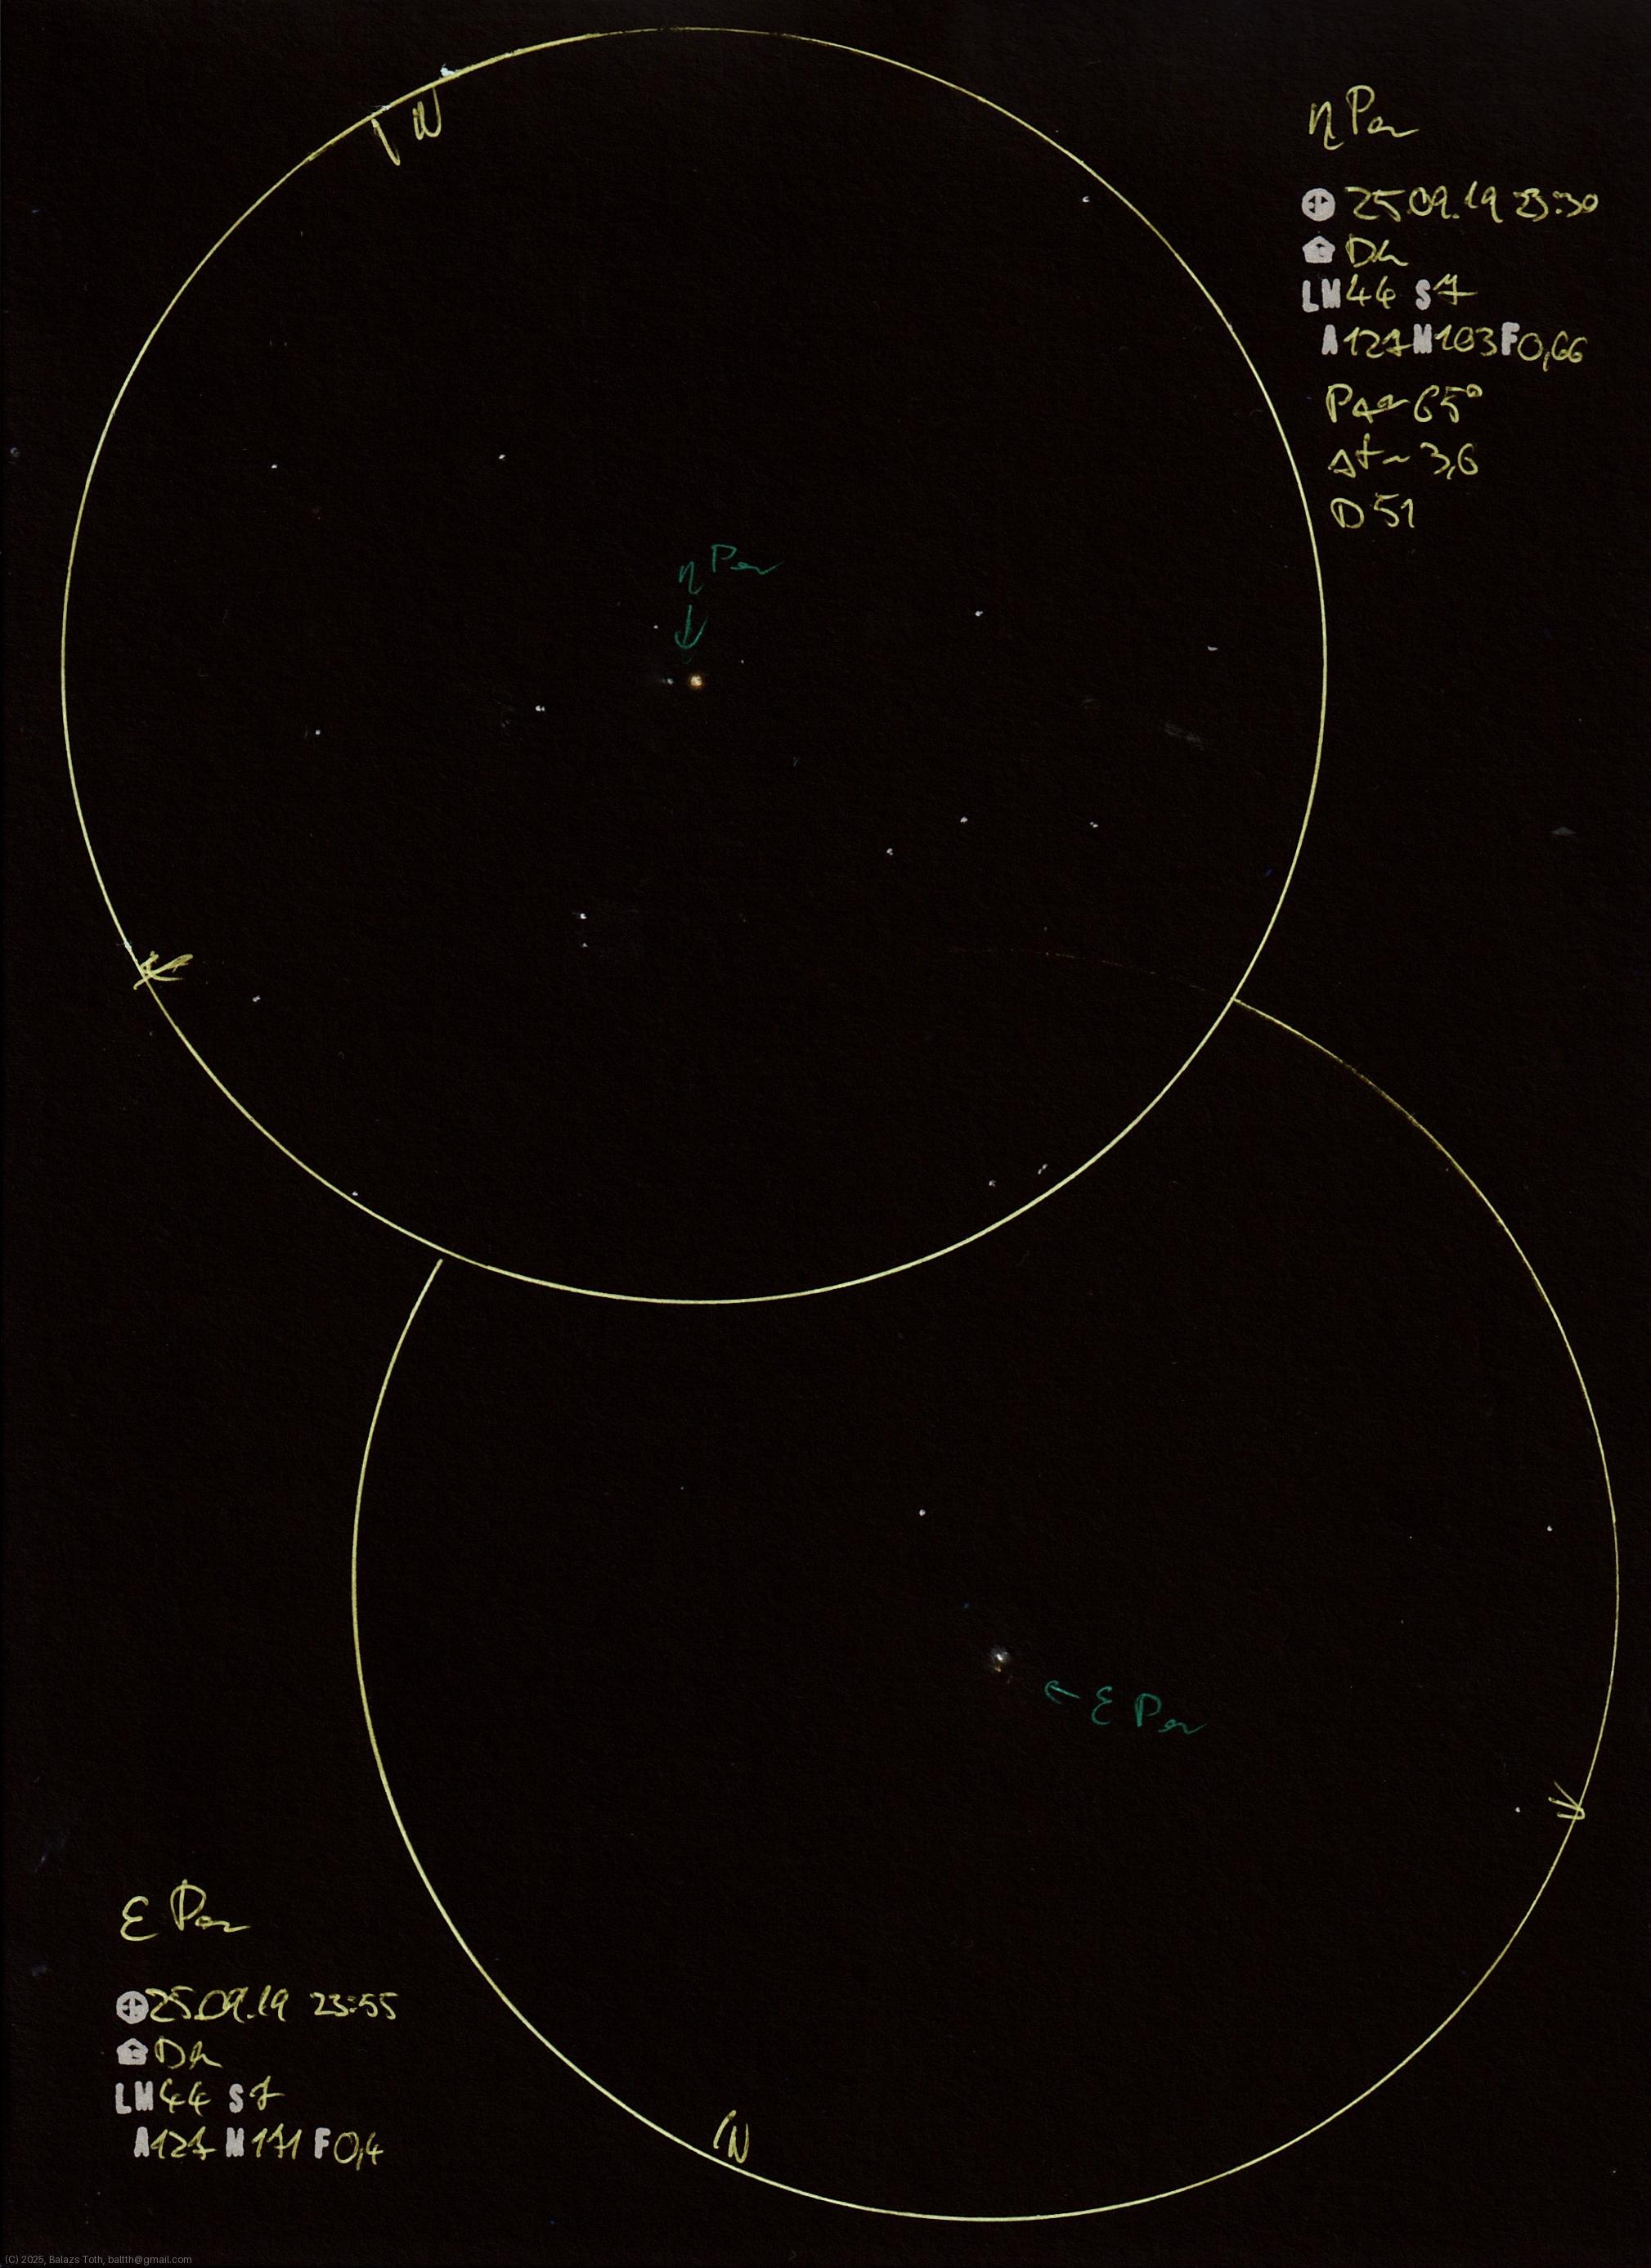 N
η Per
25.09.19 23:30
Dh
LM 4,4 S 7
A 127 M 103 F 0,66
PA ~ 65°
Δt ~ 3,6
D 51
η Per
↓
← ε Per
ε Per
25.09.19 23:55
Dh
LM 4,4 S 7
A 127 M 171 F 0,4
N
(C) 2025, Balazs Toth, baltth@gmail.com